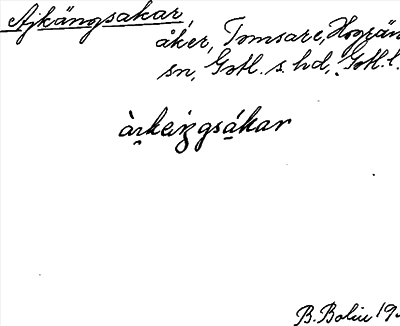 Ajkängsakar,
åker, Tomsare, Hogrän
sn, Gotl. s. hd, Gotl. l.
àrkeiŋgsákar
B. Bolin 19